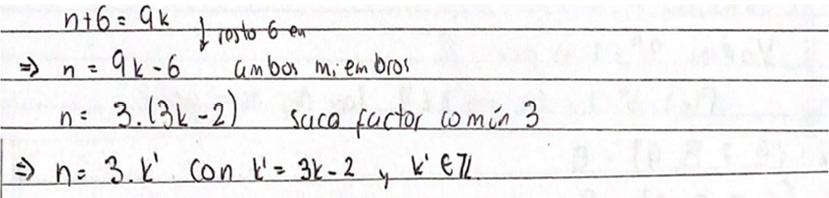 n+6 = 9k ↓ resto 6 en
⇒ n = 9k-6 ambos miembros
n = 3.(3k-2) saco factor común 3
⇒ n = 3.k' con k' = 3k-2 y k' ∈ ℤ